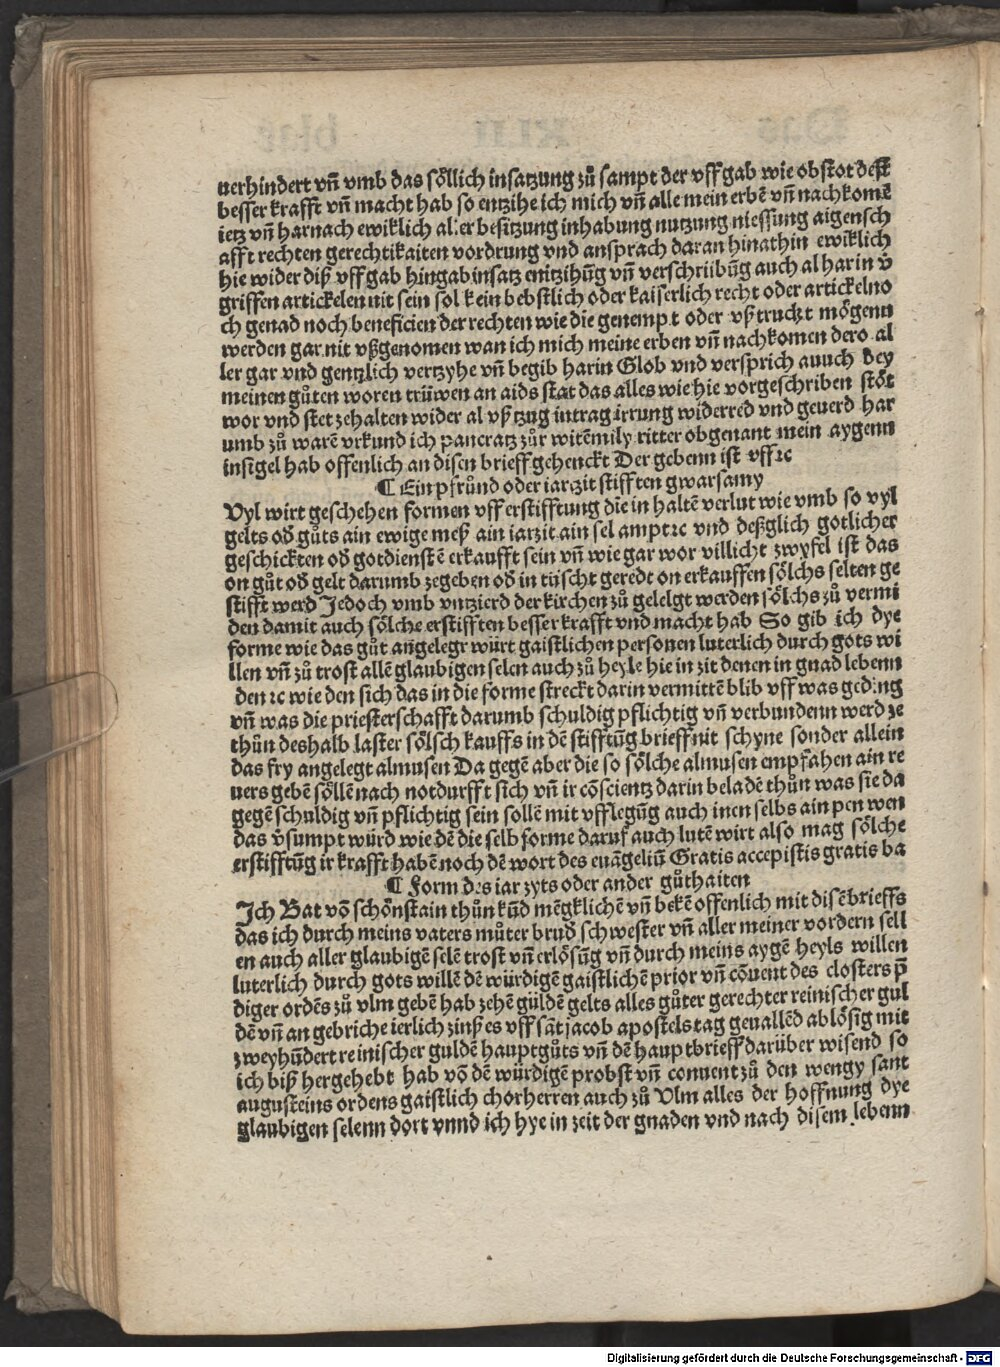 uerhindert vñ vmb das söllich insatzung zů sampt der vffgab wie obstot dest
besser krafft vñ macht hab so entzihe ich mich vñ alle mein erbē vñ nachkomē
ietz vñ harnach ewiklich aller besitzung inhabung nutzung niessung aigensch
afft rechten gerechtikaiten vordrung vnd ansprach daran hinathin ewiklich
hie wider diß vffgab hingab insatz entzihūg vñ verschriibūg auch al har in v̄
griffen artickelen nit sein sol kein bebstlich oder kaiserlich recht oder artickel no
ch genad noch beneficien der rechten wie die genempt oder vßtruckt mögenn
werden gar nit vßgenomen wan ich mich meine erben vñ nachkomen dero al
ler gar vnd gentzlich vertzyhe vñ begib harin Glob vnd versprich auuch bey
meinen gůten woren trüwen an aids stat das alles wie hie vorgeschriben stöt
wor vnd stet zehalten wider al vßtzug intrag irrung widerred vnd geuerd har
umb zů warē vrkund ich pancratz zůr witēmily ritter obgenant mein aygenn
insigel hab offenlich an disen brieff gehenckt Der gebenn ist vff ꝛc
¶ Ein pfrůnd oder iarzit stifften gwarsamy
Vyl wirt geschehen formen vff erstifftung die in haltē verlut wie vmb so vyl
gelts od̄ gůts ain ewige meß ain iarzit ain sel ampt ꝛc vnd deßglich gotlicher
geschickten od̄ gotdienstē erkaufft sein vñ wie gar wor villicht zwyfel ist das
on gůt od̄ gelt darumb zegeben od̄ in tüscht geredt on erkauffen sölchs selten ge
stifft werd Jedoch vmb vntzierd der kirchen zů gelelgt werden sölchs zů vermi
den damit auch sölche erstifften besser krafft vnd macht hab So gib ich dye
forme wie das gůt angelegr würt gaistlichen personen luterlich durch gots wi
llen vñ zů trost allē glaubigen selen auch zů heyle hie in zit denen in gnad lebenn
den ꝛc wie den sich das in die forme streckt darin vermittē blib vff was geding
vñ was die priesterschafft darumb schuldig pflichtig vñ verbundenn werd ze
thůn deshalb laster sölsch kauffs in dē stifftūg brieff nit schyne sonder allein
das fry angelegt almusen Da gegē aber die so sölche almusen empfahen ain re
uers gebē söllē nach notdurfft sich vñ ir cōscientz darin beladē thůn was sie da
gegē schuldig vñ pflichtig sein sollē mit vfflegūg auch inen selbs ain pen wen
das v̄sumpt würd wie dē die selb forme daruf auch lutē wirt also mag sölche
erstifftūg ir krafft habē noch dē wort des euāgeliū Gratis accepistis gratis ba
¶ Form des iar zyts oder ander gůthaiten
Jch Bat vō schönstain thůn kūd mēgklichē vñ bekē offenlich mit disē brieffs
das ich durch meins vaters můter brud̄ schwester vñ aller meiner vordern sell
en auch aller glaubigē selē trost vñ erlösūg vñ durch meins aygē heyls willen
luterlich durch gots willē dē würdigē gaistlichē prior vñ cōuent des closters p̄
diger ordēs zů vlm gebē hab zehē güldē gelts alles gůter gerechter reinischer gul
dē vñ an gebriche ierlich zinß es vff sāt jacob apostels tag geuallēd ablösig mit
zweyhūdert reinischer guldē hauptgůts vñ dē hauptbrieff darüber wisend so
ich biß hergehebt hab vō dē würdigē probst vñ conuent zů den wengy sant
augusteins ordens gaistlich chorherren auch zů Vlm alles der hoffnung dye
glaubigen selenn dort vnnd ich hye in zeit der gnaden vnd nach disem lebenn
Digitalisierung gefördert durch die Deutsche Forschungsgemeinschaft - DFG